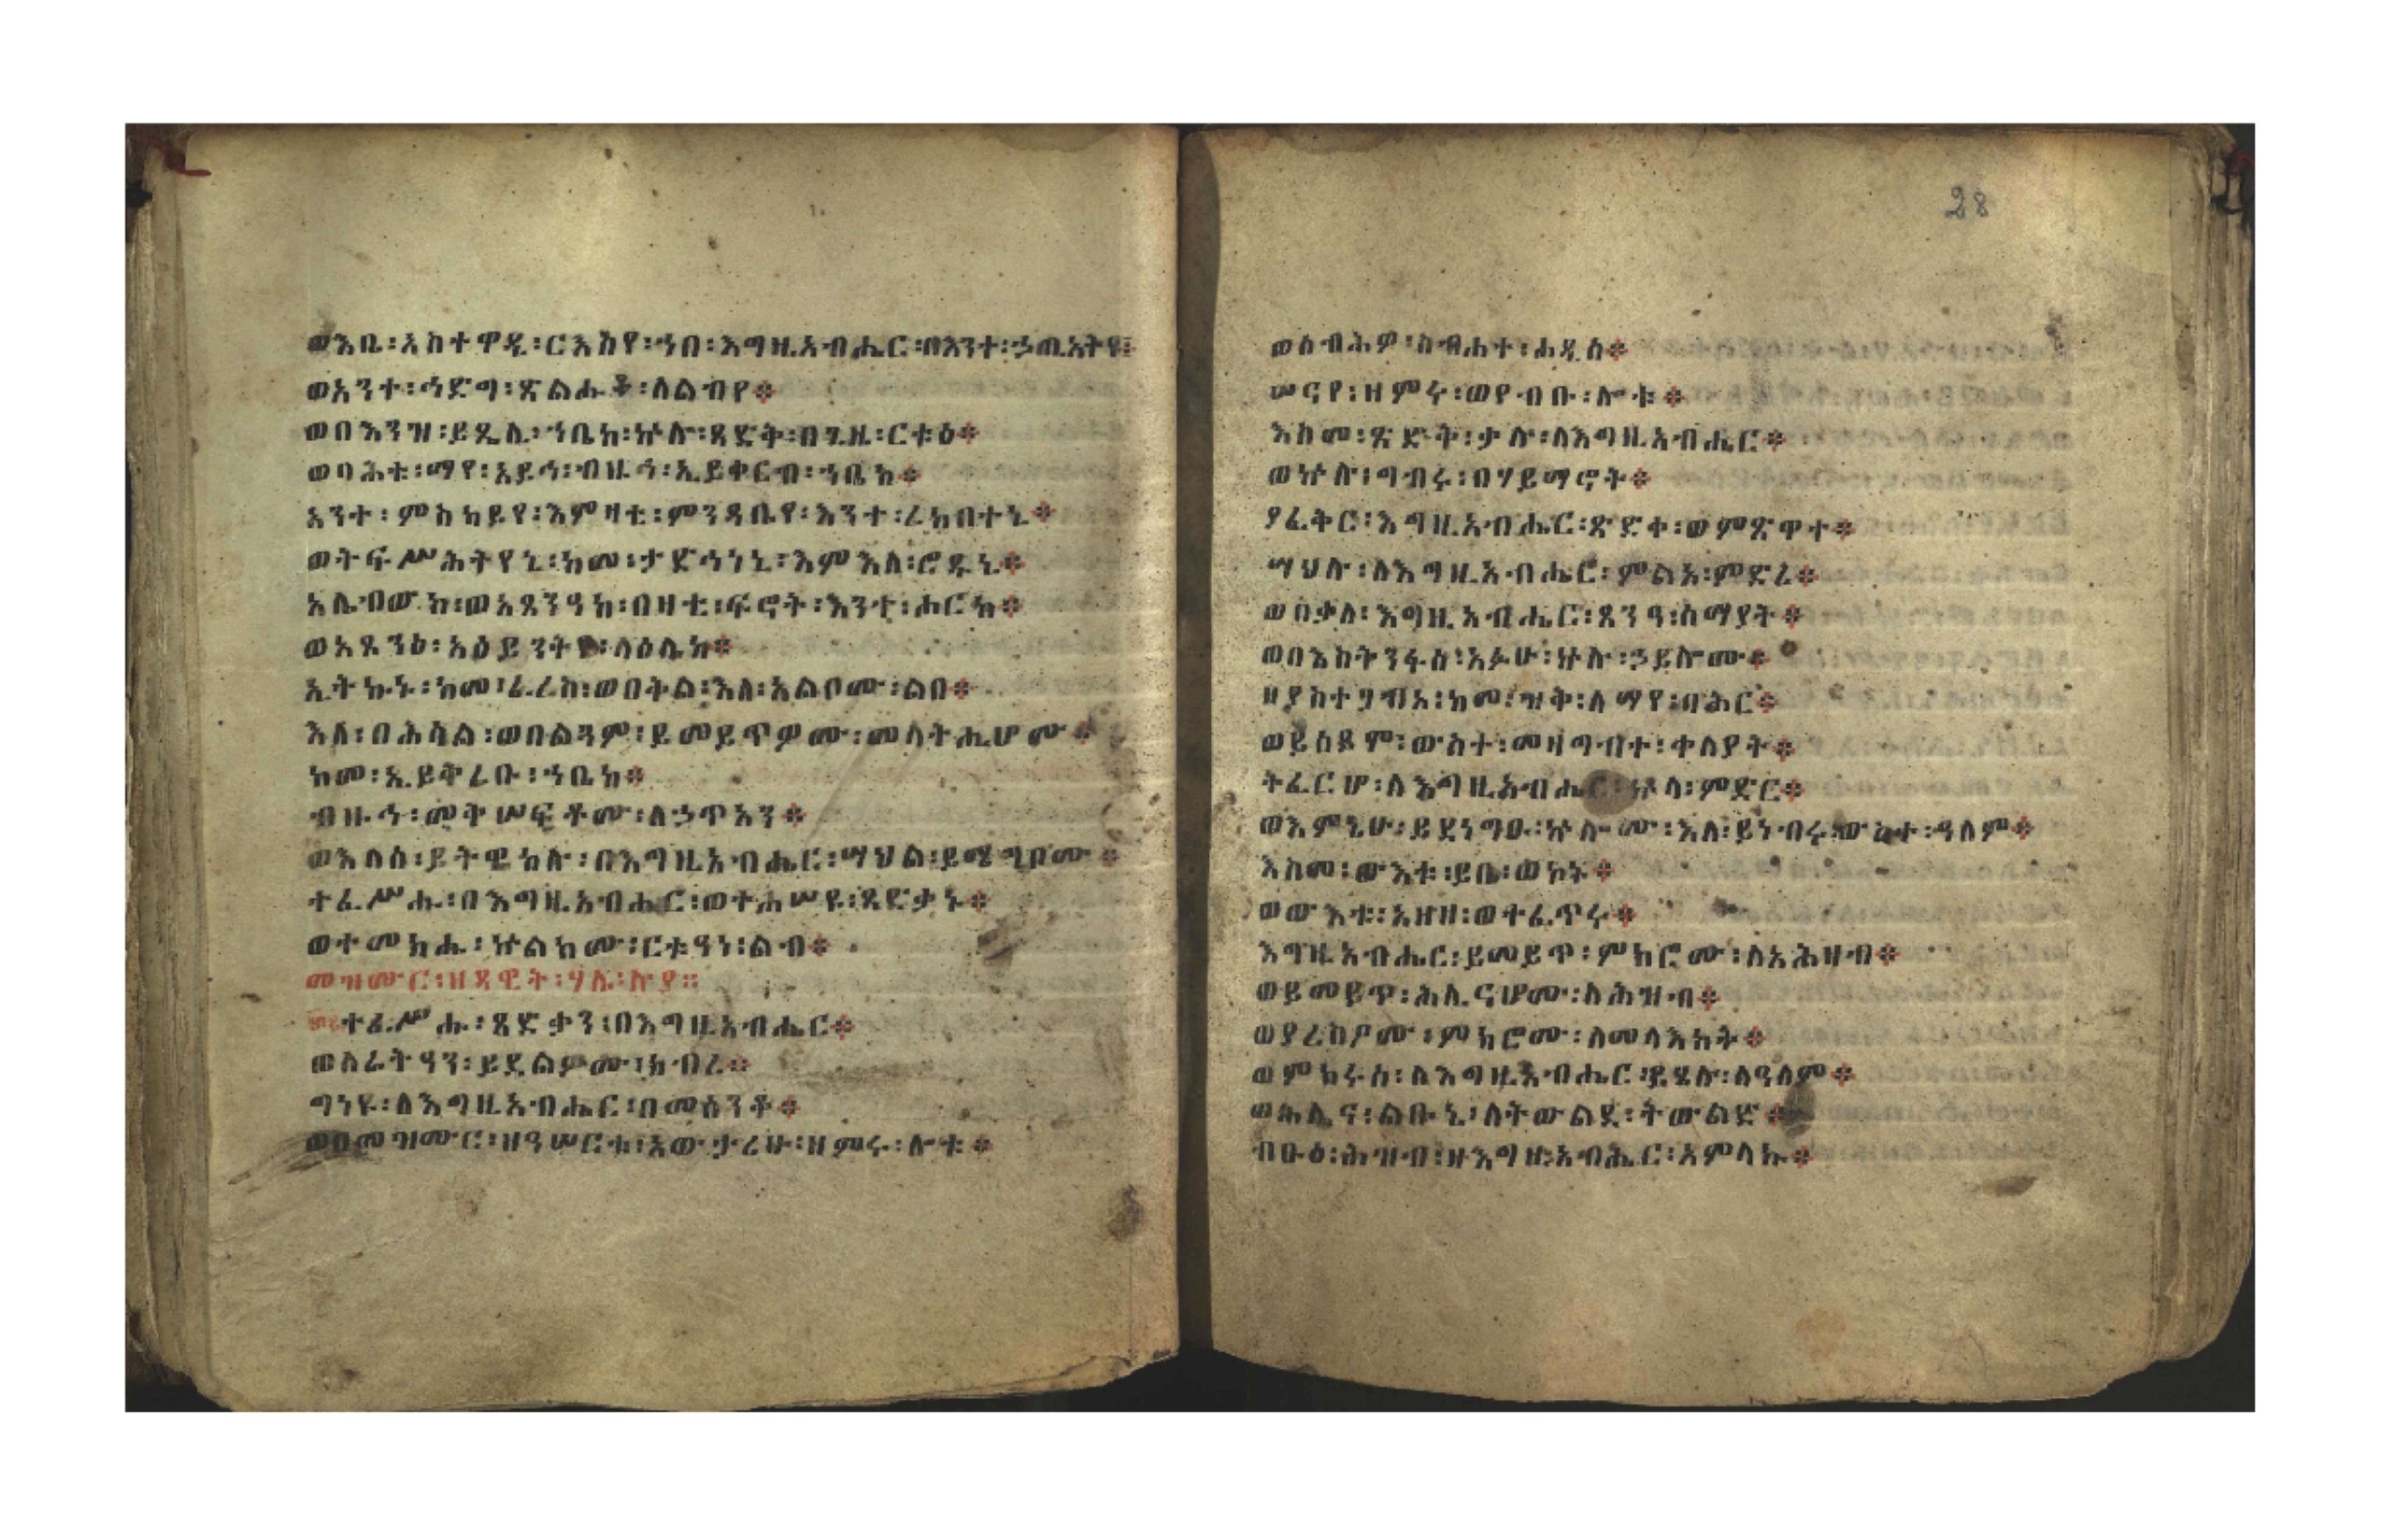 ወእቤ፡አስተዋዲ፡ርእስየ፡ኀበ፡እግዚአብሔር፡በእንተ፡ኃጢአትየ፡
ወአንተ፡ኅድግ፡ጽልሑቶ፡ለልብየ፨
ወበእንዝ፡ይጼሊ፡ኀቤከ፡ኵሉ፡ጻድቅ፡በጊዜ፡ርቱዕ፨
ወባሕቱ፡ማየ፡አይኅ፡ብዙኅ፡ኢይቀርብ፡ኀቤከ፨
አንተ፡ምስካይየ፡እምዛቲ፡ምንዳቤየ፡እንተ፡ረከበተኒ፨
ወትፍሥሕትየኒ፡ከመ፡ታድኅነኒ፡እምእለ፡ሮዱኒ፨
አሌብወከ፡ወአጸንዓከ፡በዛቲ፡ፍኖት፡እንተ፡ሖርከ፨
ወአጸንዕ፡አዕይንትየ፡ላዕሌከ፨
ኢትኩኑ፡ከመ፡ፈረስ፡ወበቅል፡እለ፡አልቦሙ፡ልበ፨
እለ፡በሕሳል፡ወበልጓም፡ይመይጥዎሙ፡መላትሒሆሙ፨
ከመ፡ኢይቅረቡ፡ኀቤከ፨
ብዙኅ፡መቅሠፍቶሙ፡ለኃጥአን፨
ወእለሰ፡ይትዌከሉ፡በእግዚአብሔር፡ሣህል፡ይሜግቦሙ፨
ተፈሥሑ፡በእግዚአብሔር፡ወተሐሠዩ፡ጻድቃኑ፨
ወተመክሑ፡ኵልክሙ፡ርቱዓነ፡ልብ፨
መዝሙር፡ዘዳዊት፡ሃሌ፡ሉያ።
ተፈሥሑ፡ጻድቃን፡በእግዚአብሔር፨
ወለራትዓን፡ይደልዎሙ፡ክብረ፨
ግነዩ፡ለእግዚአብሔር፡በመሰንቆ፨
ወበመዝሙር፡ዘዓሠርቱ፡አውታሪሁ፡ዘምሩ፡ሎቱ፨
ወሰብሕዎ፡ስብሐተ፡ሐዲስ፨
ሠናየ፡ዘምሩ፡ወየብቡ፡ሎቱ፨
እስመ፡ጽድቅ፡ቃሉ፡ለእግዚአብሔር፨
ወኵሉ፡ግብሩ፡በሃይማኖት፨
ያፈቅር፡እግዚአብሔር፡ጽድቀ፡ወምጽዋተ፨
ሣህሉ፡ለእግዚአብሔር፡ምልአ፡ምድረ፨
ወበቃለ፡እግዚአብሔር፡ጸንዓ፡ሰማያት፨
ወበእስትንፋሰ፡አፉሁ፡ኵሉ፡ኃይሎሙ፨
ዘያስተጋብእ፡ከመ፡ዝቅ፡ለማየ፡ባሕር፨
ወይሰይሞ፡ውስተ፡መዛግብተ፡ቀላያት፨
ትፈርሆ፡ለእግዚአብሔር፡ኵላ፡ምድር፨
ወእምኔሁ፡ይደነግፁ፡ኵሎሙ፡እለ፡ይነብሩ፡ውስተ፡ዓለም፨
እስመ፡ውእቱ፡ይቤ፡ወኮኑ፨
ወውእቱ፡አዘዘ፡ወተፈጥሩ፨
እግዚአብሔር፡ይመይጥ፡ምክሮሙ፡ለአሕዛብ፨
ወይመይጥ፡ሕሊናሆሙ፡ለሕዝብ፨
ወያረስዖሙ፡ምክሮሙ፡ለመላእክት፨
ወምክሩሰ፡ለእግዚአብሔር፡ይሄሉ፡ለዓለም፨
ወሕሊና፡ልቡኒ፡ለትውልደ፡ትውልድ፨
ብፁዕ፡ሕዝብ፡ዘእግዚአብሔር፡አምላኩ፨
28